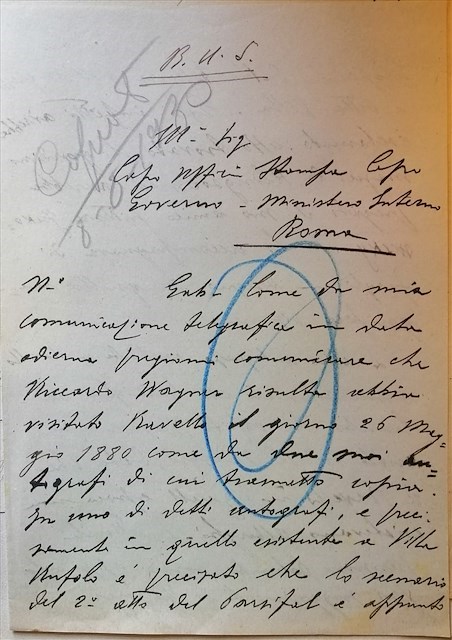 R. U. S.
Ill.mo Sig
Capo Ufficio Stampa Capo
Governo - Ministero Interno
Roma
N.°
Gab. Come da mia
comunicazione telegrafica in data
odierna pregiomi comunicare che
Riccardo Wagner risulta abbia
visitato Ravello il giorno 26 Mag=
gio 1880 come da due suoi au=
tografi di cui trasmetto copia.
In uno di detti autografi, e preci-
samente in quello esistente a Villa
Rufolo è precisato che lo scenario
del 2° atto del Parsifal è appunto